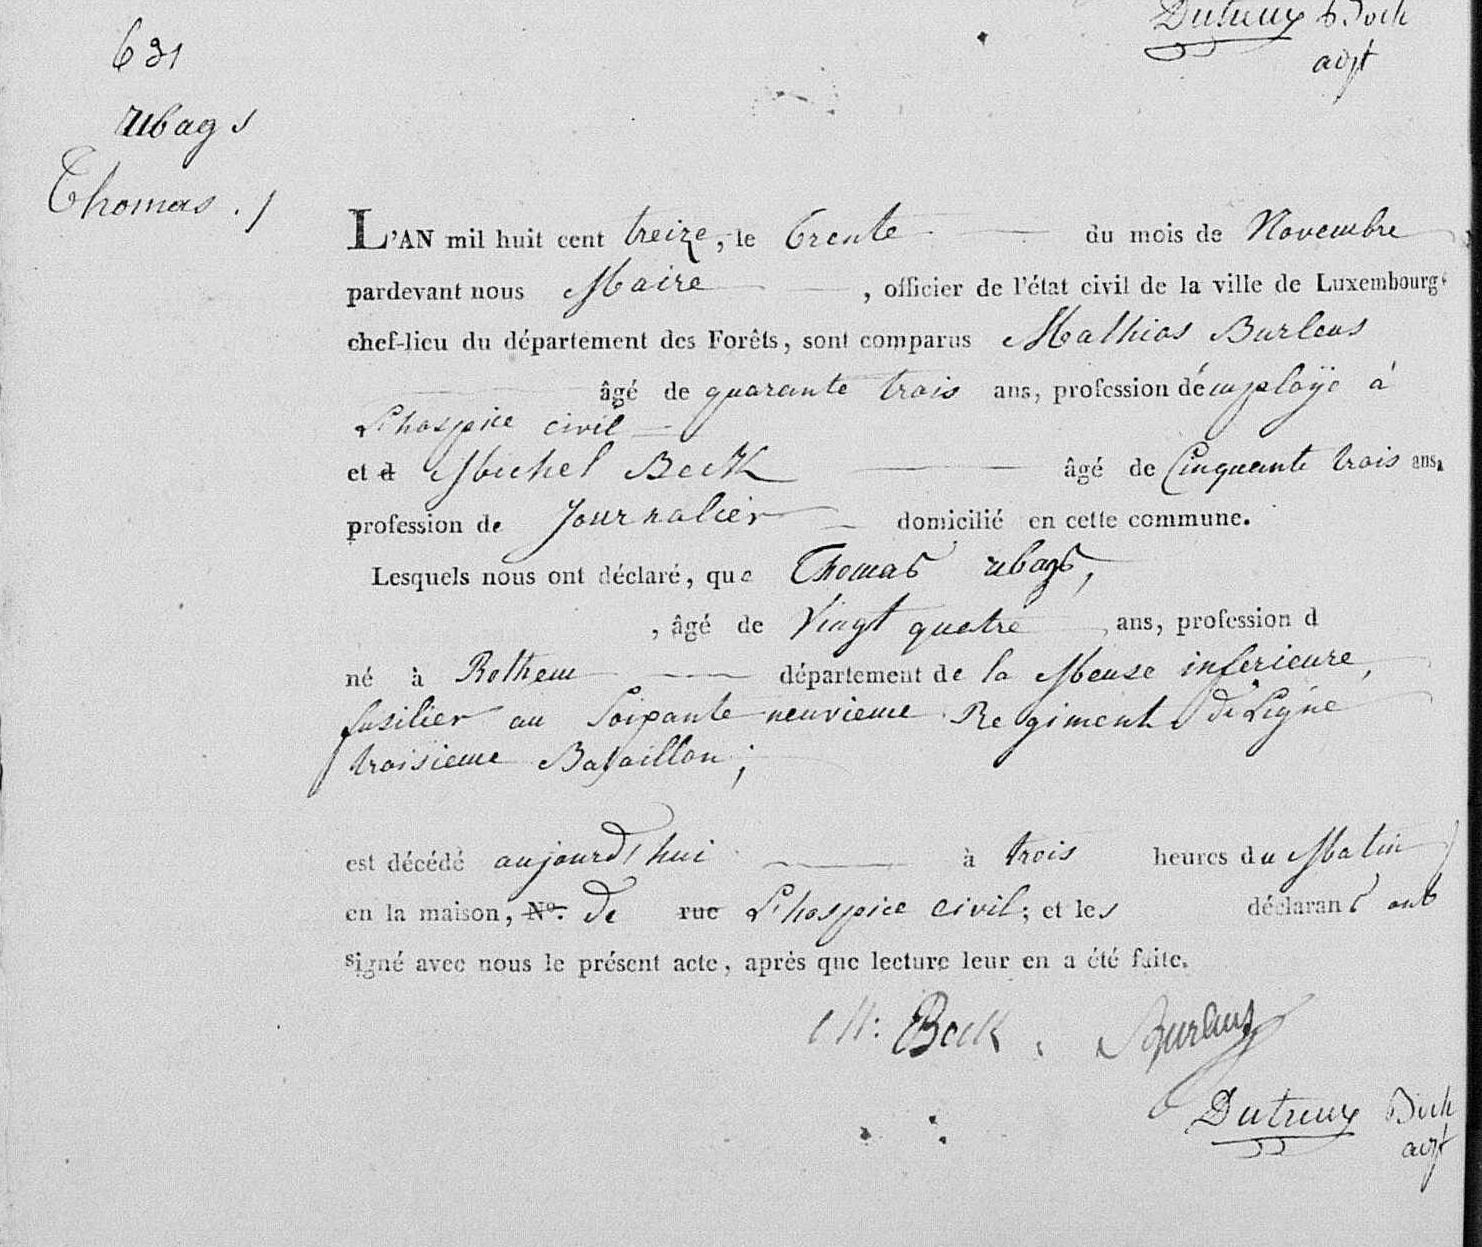 Dutreux Boch
adjt
631
Ubags
Thomas
L'AN mil huit cent treize, le trente du mois de Novembre
pardevant nous Maire, officier de l'état civil de la ville de Luxembourg
chef-lieu du département des Forêts, sont comparus Mathias Burlens
âgé de quarante trois ans, profession d'employé à
L'hospice civil
et d Michel Beck âgé de Cinquante trois ans,
profession de Journalier domicilié en cette commune.
Lesquels nous ont déclaré, que Thomas Ubags,
, âgé de Vingt quatre ans, profession d
né à Rothem département de la Meuse inferieure,
fusilier au Soixante neuvieme Regiment de Ligne
troisieme Bataillon;
est décédé aujourd'hui à trois heures du Matin
en la maison, No. de rue L'hospice civil; et les déclarans ont
signé avec nous le présent acte, après que lecture leur en a été faite.
M: Beck Burlens
Dutreux Boch
adjt